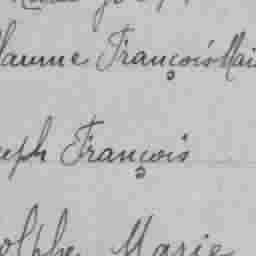 laume François Mai
seph François
olphe Marie